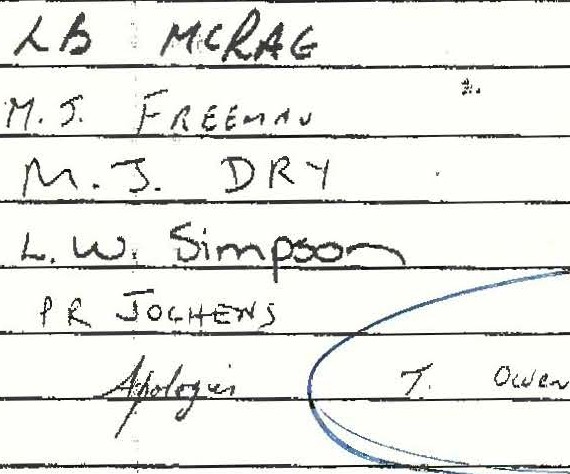 LB McRAG
M.J. FREEMAN
M.J. DRY
L.W. Simpson
PR JOCHENS
Apologies T. Owen